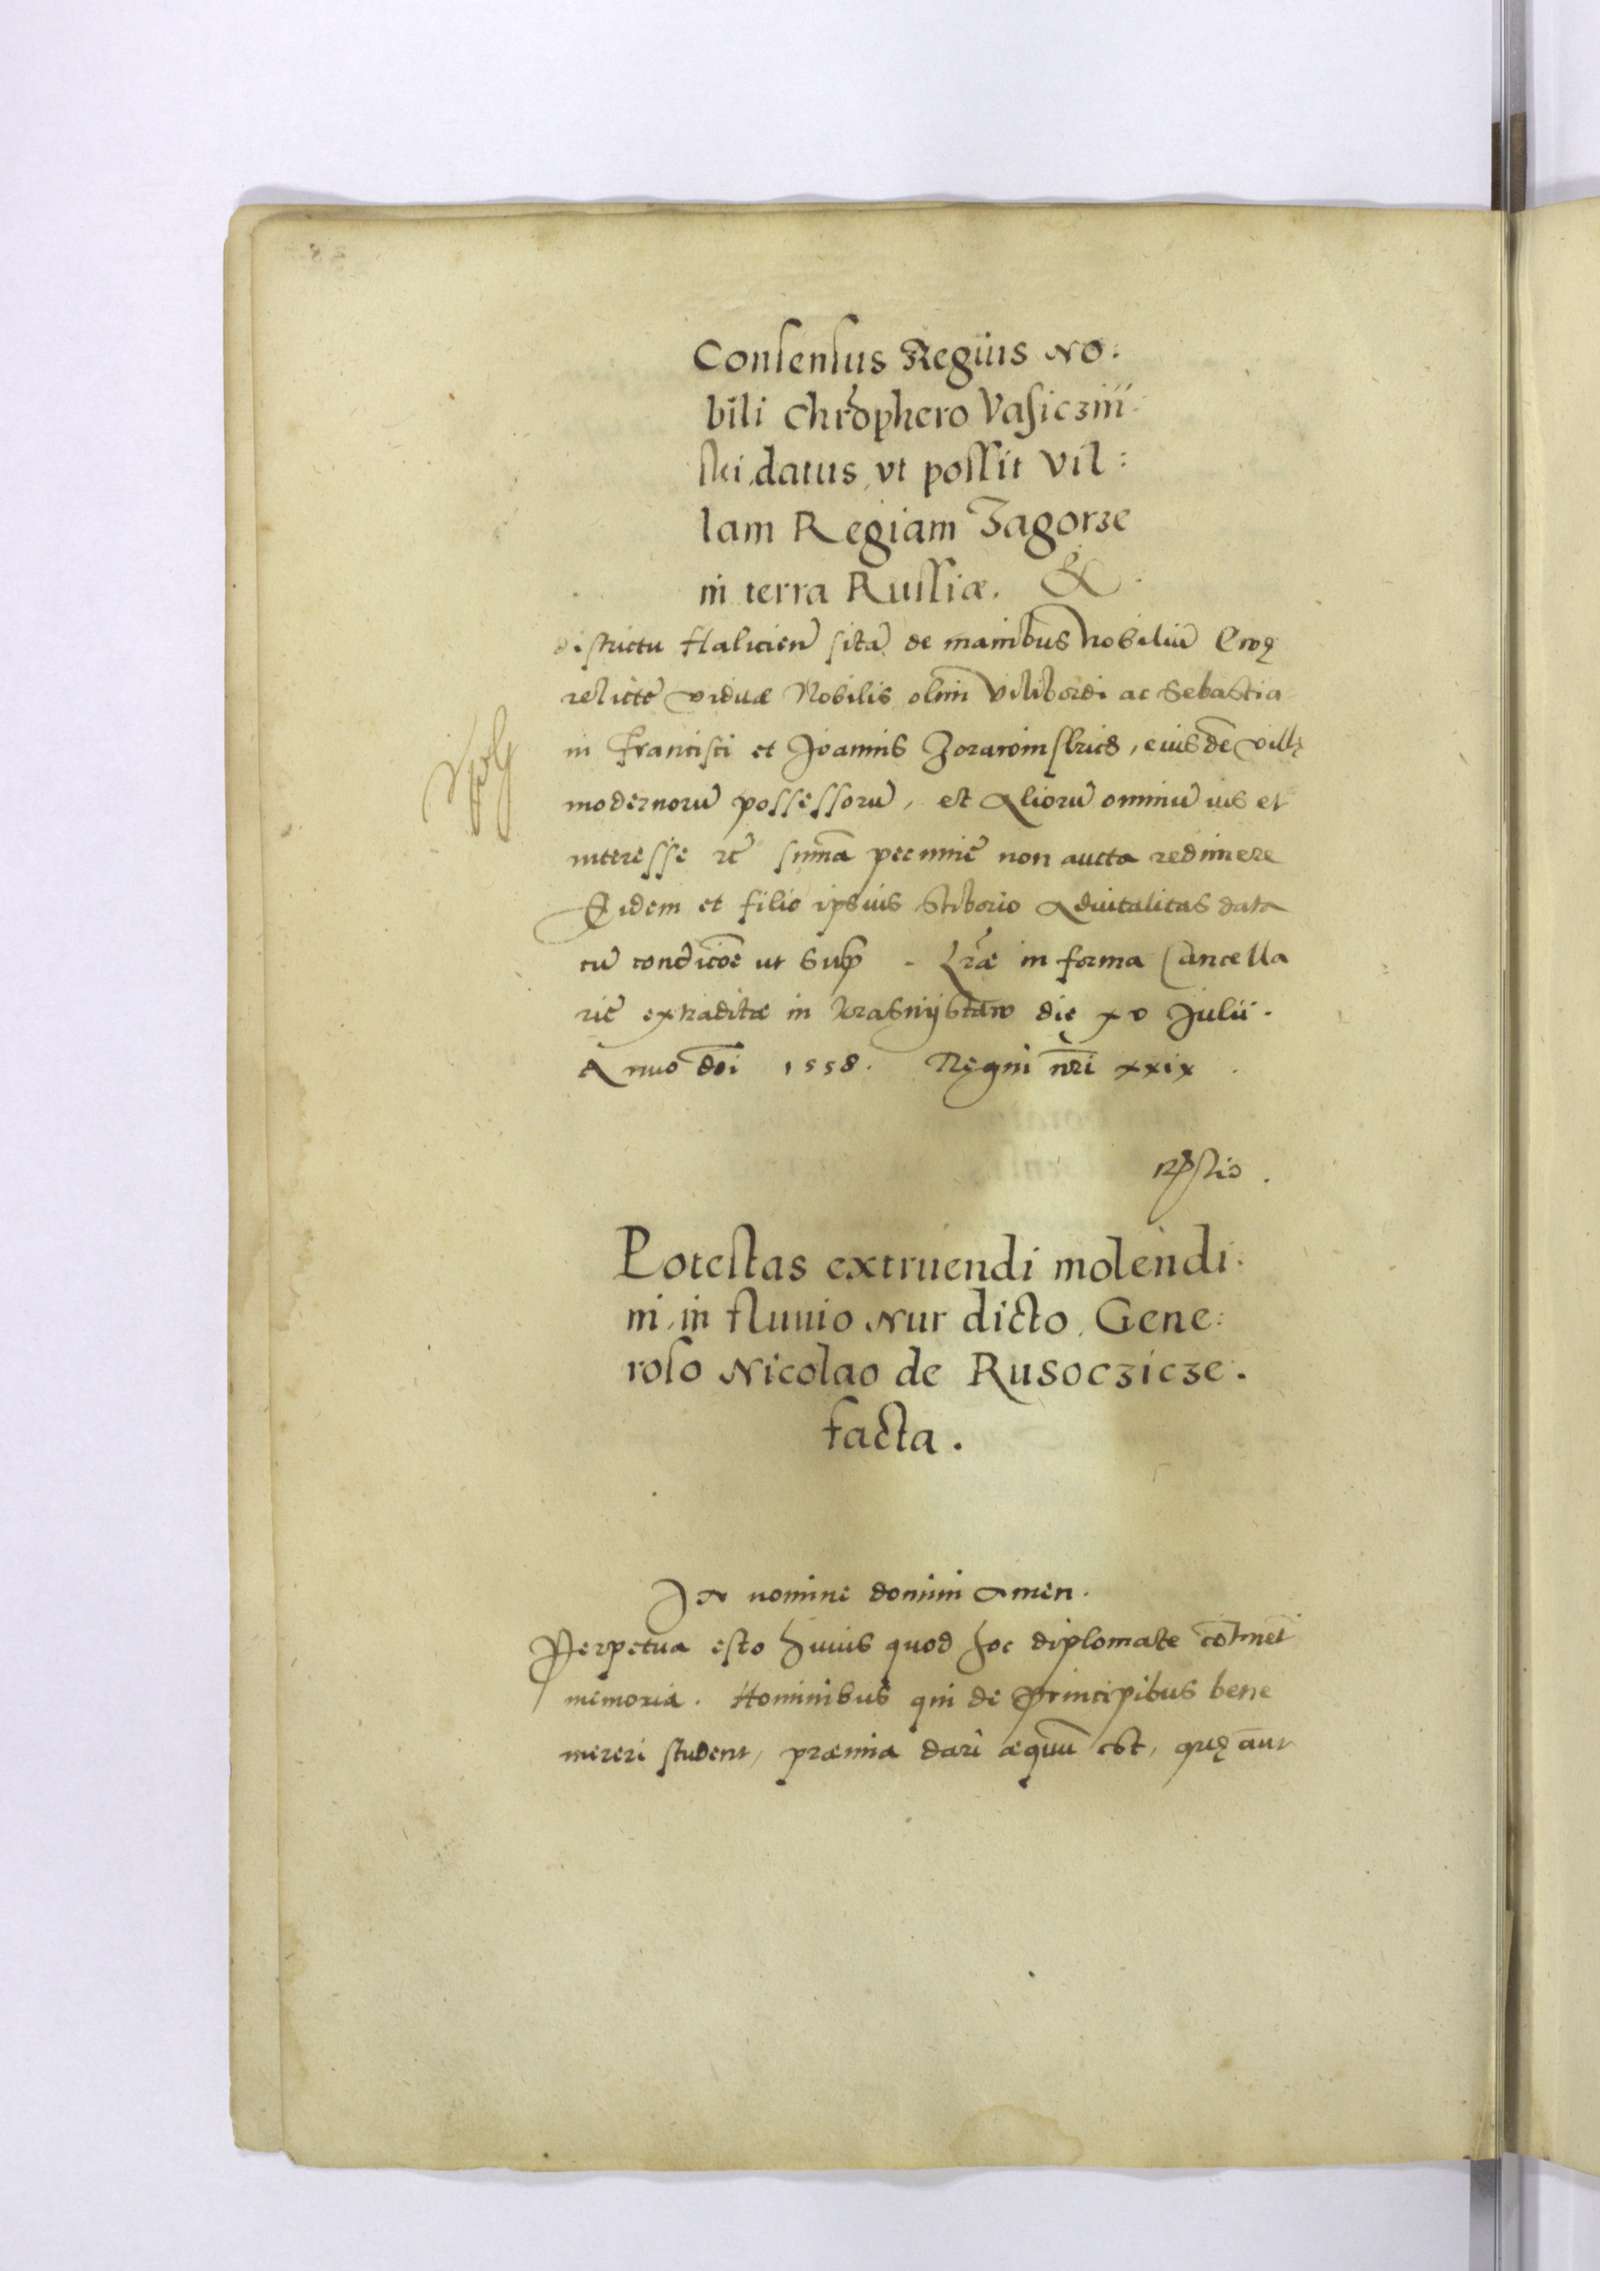 Consensus Regius No:
bili Chrōphero Vasiczin
ski, datus, vt possit Vil:
lam Regiam Zagorze
in terra Russiæ. &
districtu Halicień sitā de manibus Nobiliū Ewę
relictę viduæ Nobilis olim Vilibordi ac Sebastia
ni Francisci et Joannis Zorawinskich, eiusdē villę
modernorū possessorū, et Aliorū omniū ius et
interesse rc̄ sum̄a pecunie non aucta redimere
Eidem et filio ipsius Stiborio Aduitalitas data
cū condicōe ut sup - Lræ in forma Cancella
rię extraditæ in Krasnijstaw die xv Julii.
Anno dn̄i 1558. Regni nr̄i xxix.
Potestas extruendi molendi:
ni, in fluuio Nur dicto, Gene:
roso Nicolao de Rusoczicze.
facta.
In nomine domini Amen.
Perpetua esto huius quod hoc diplomate cōtinet
memoria. Hominibus qui de Principibus bene
mereri student, præmia dari æquū est, quę aūt